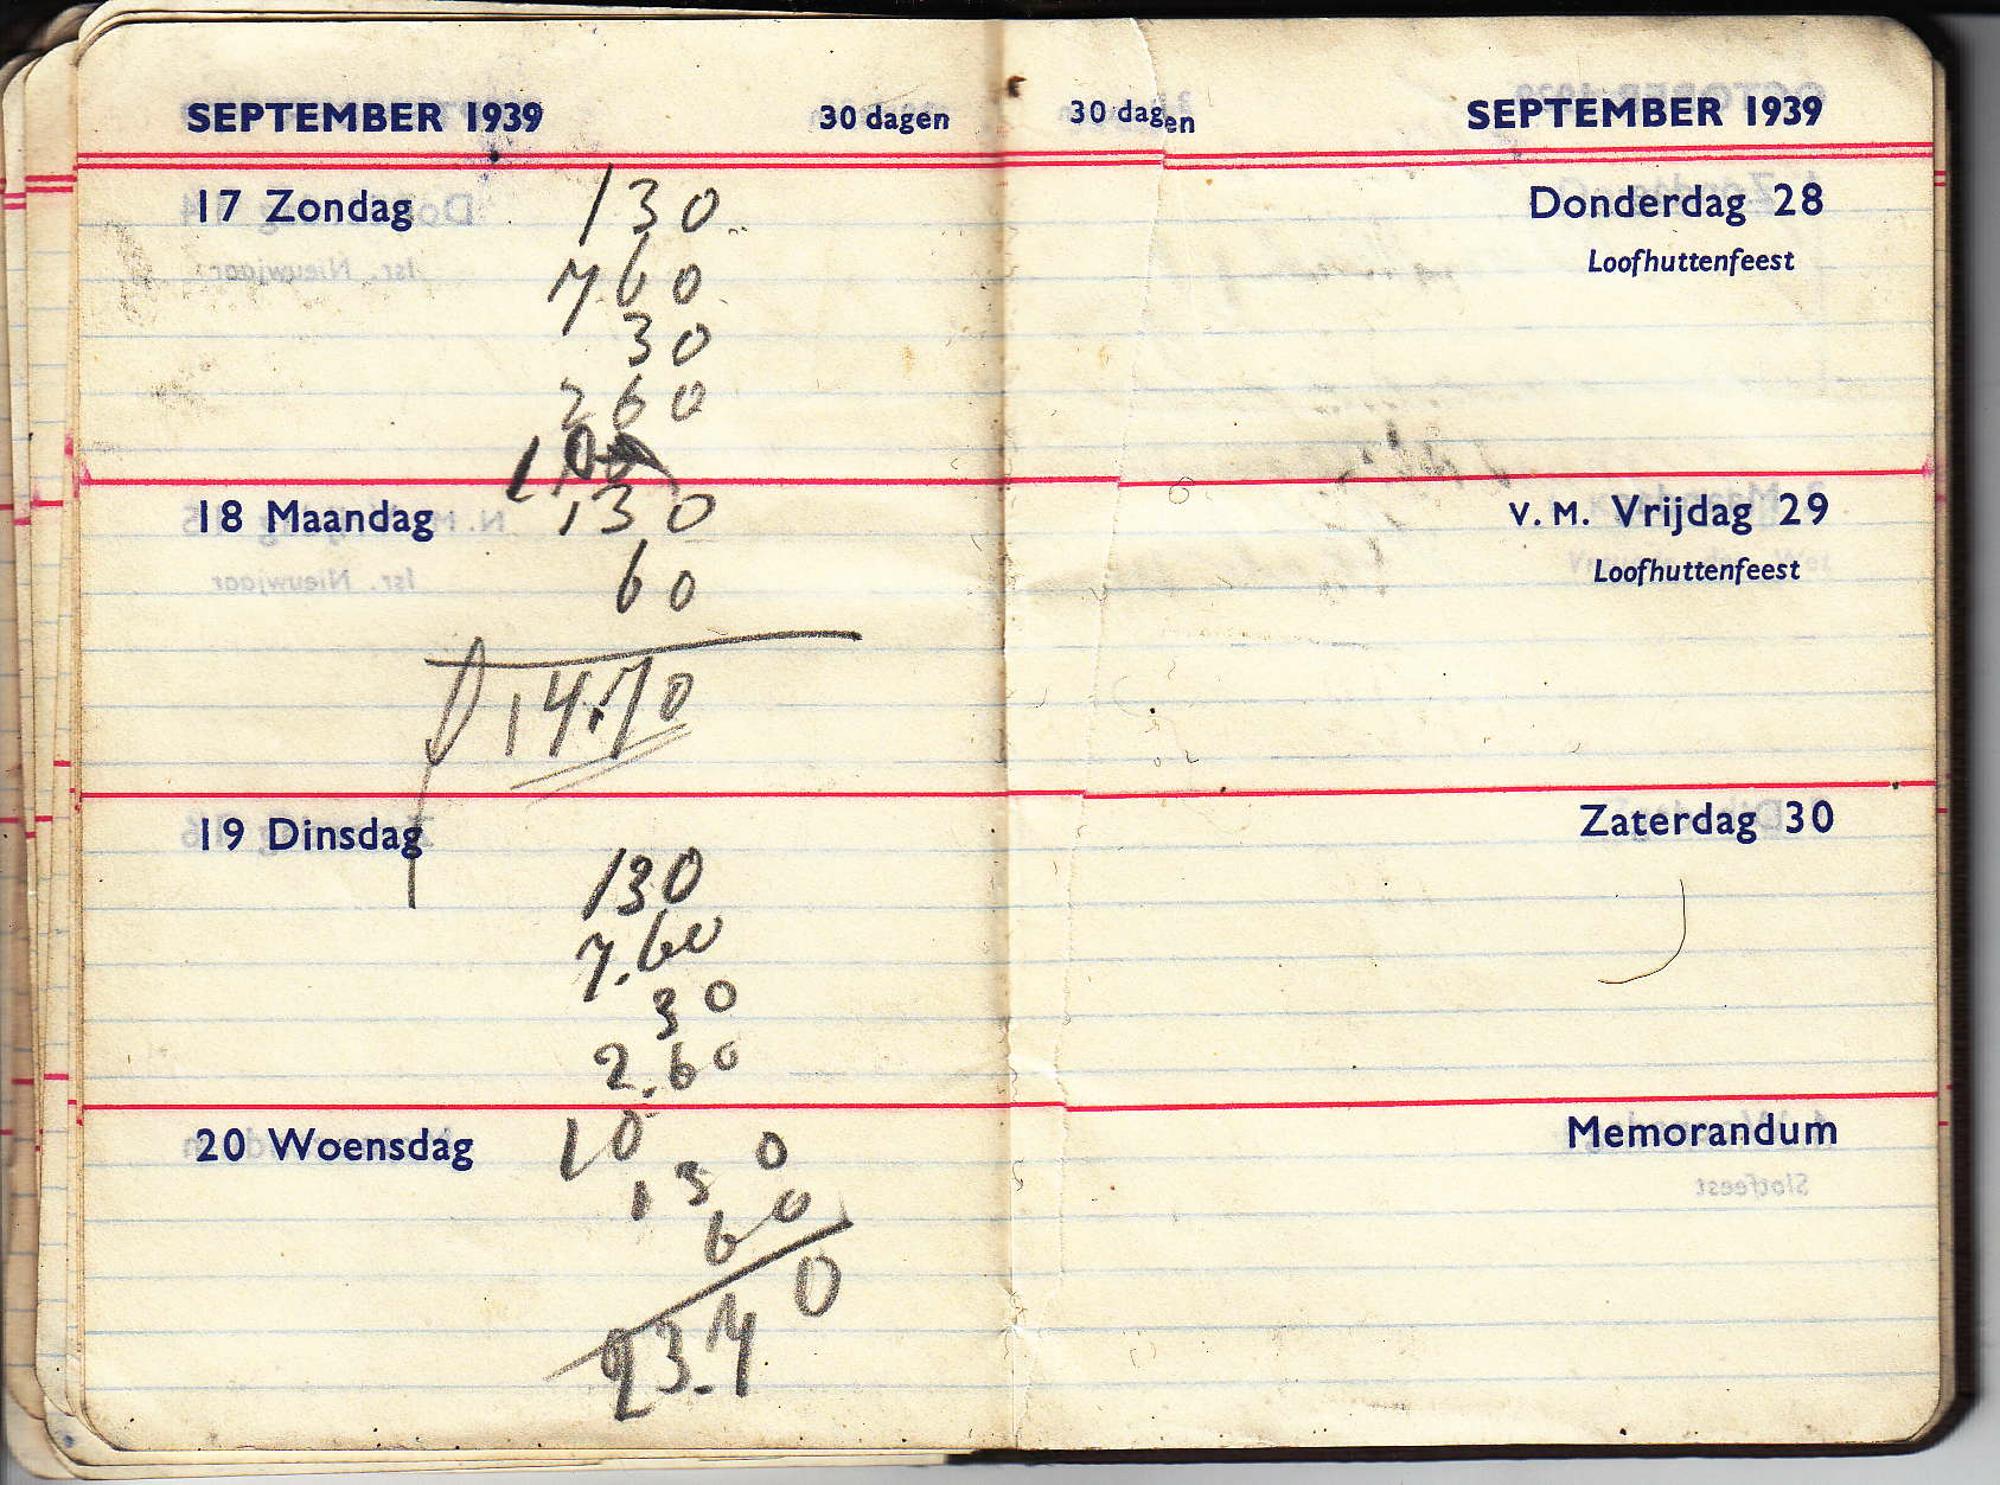 SEPTEMBER 1939 30 dagen
17 Zondag
130
760
30
260
100
18 Maandag
130
60
14.70
19 Dinsdag
130
7.60
30
2.60
20 Woensdag
10
130
60
23.70
30 dagen SEPTEMBER 1939
Donderdag 28
Loofhuttenfeest
V. M. Vrijdag 29
Loofhuttenfeest
Zaterdag 30
Memorandum